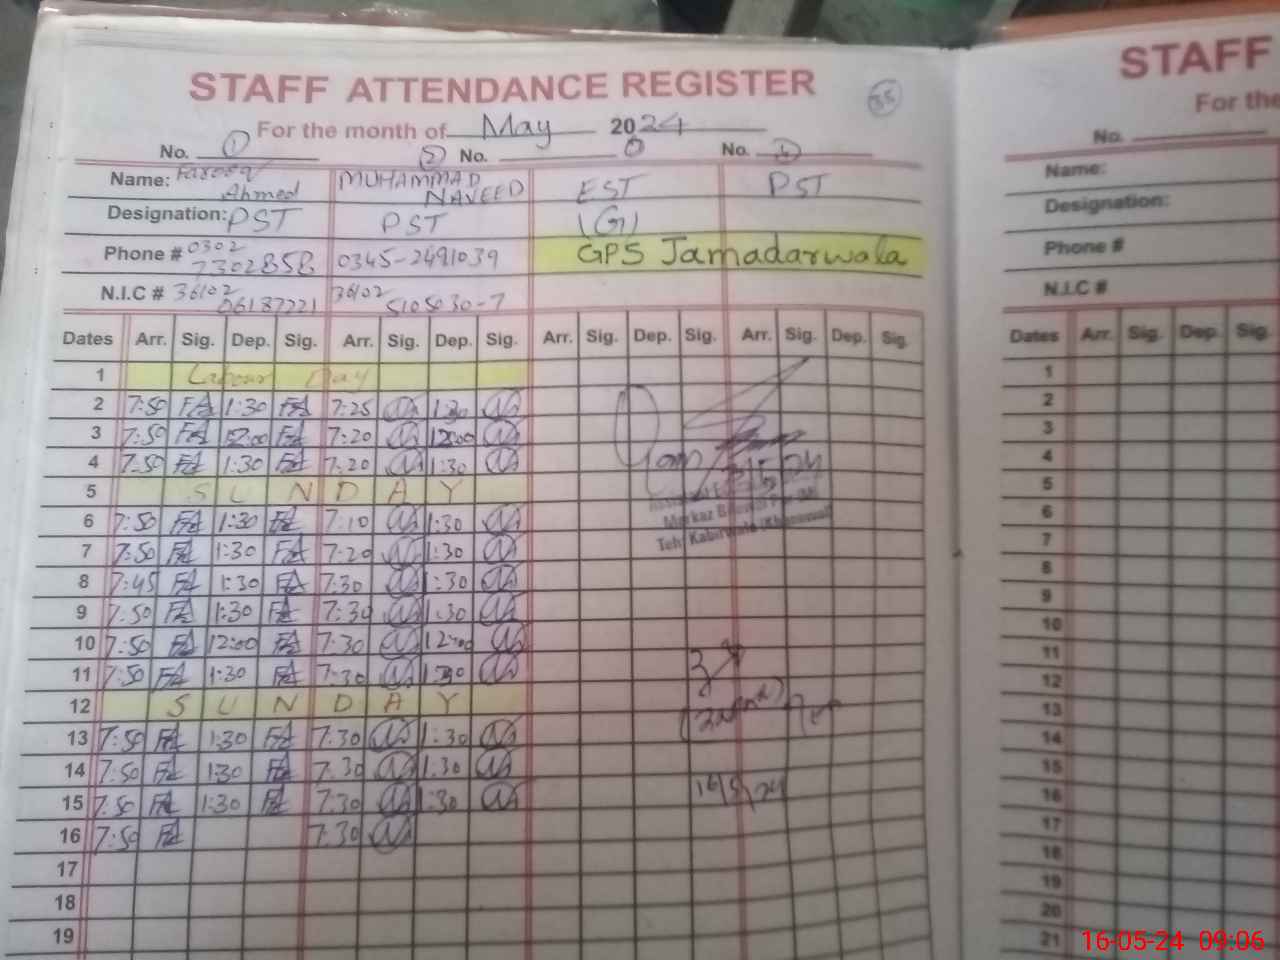 STAFF ATTENDANCE REGISTER
35
For the month of May 2024
No. 1 2 No. No.
Name: Farooq Ahmed MUHAMMAD NAVEED EST PST
Designation: PST PST (G)
Phone # 0302 7302858 0345-2491039 GPS Jamadarwala
N.I.C # 36102 06187221 36102 5105030-7
Dates Arr. Sig. Dep. Sig. Arr. Sig. Dep. Sig. Arr. Sig. Dep. Sig. Arr. Sig. Dep. Sig.
1 Labour Day
2 7:50 FA 1:30 FA 7:25 1:30
3 7:50 FA 12:00 FA 7:20 12:00
4 7:50 FA 1:30 FA 7:20 1:30
5 SUNDAY
6 7:50 FA 1:30 FA 7:10 1:30
7 7:50 FA 1:30 FA 7:20 1:30
8 7:45 FA 1:30 FA 7:30 1:30
9 7:50 FA 1:30 FA 7:30 1:30
10 7:50 FA 12:00 FA 7:30 12:00
11 7:50 FA 1:30 FA 7:30 1:30
12 SUNDAY
13 7:50 FA 1:30 FA 7:30 1:30
14 7:50 FA 1:30 FA 7:30 1:30
15 7:50 FA 1:30 FA 7:30 1:30
16 7:50 FA 7:30
17
18
19
Markaz
Teh: Kabirwala (Khanewal)
16/5/24
STAFF
For the
No.
Name:
Designation:
Phone #
N.I.C #
Dates Arr. Sig. Dep. Sig.
1
2
3
4
5
6
7
8
9
10
11
12
13
14
15
16
17
18
19
20
21
16-05-24 09:06